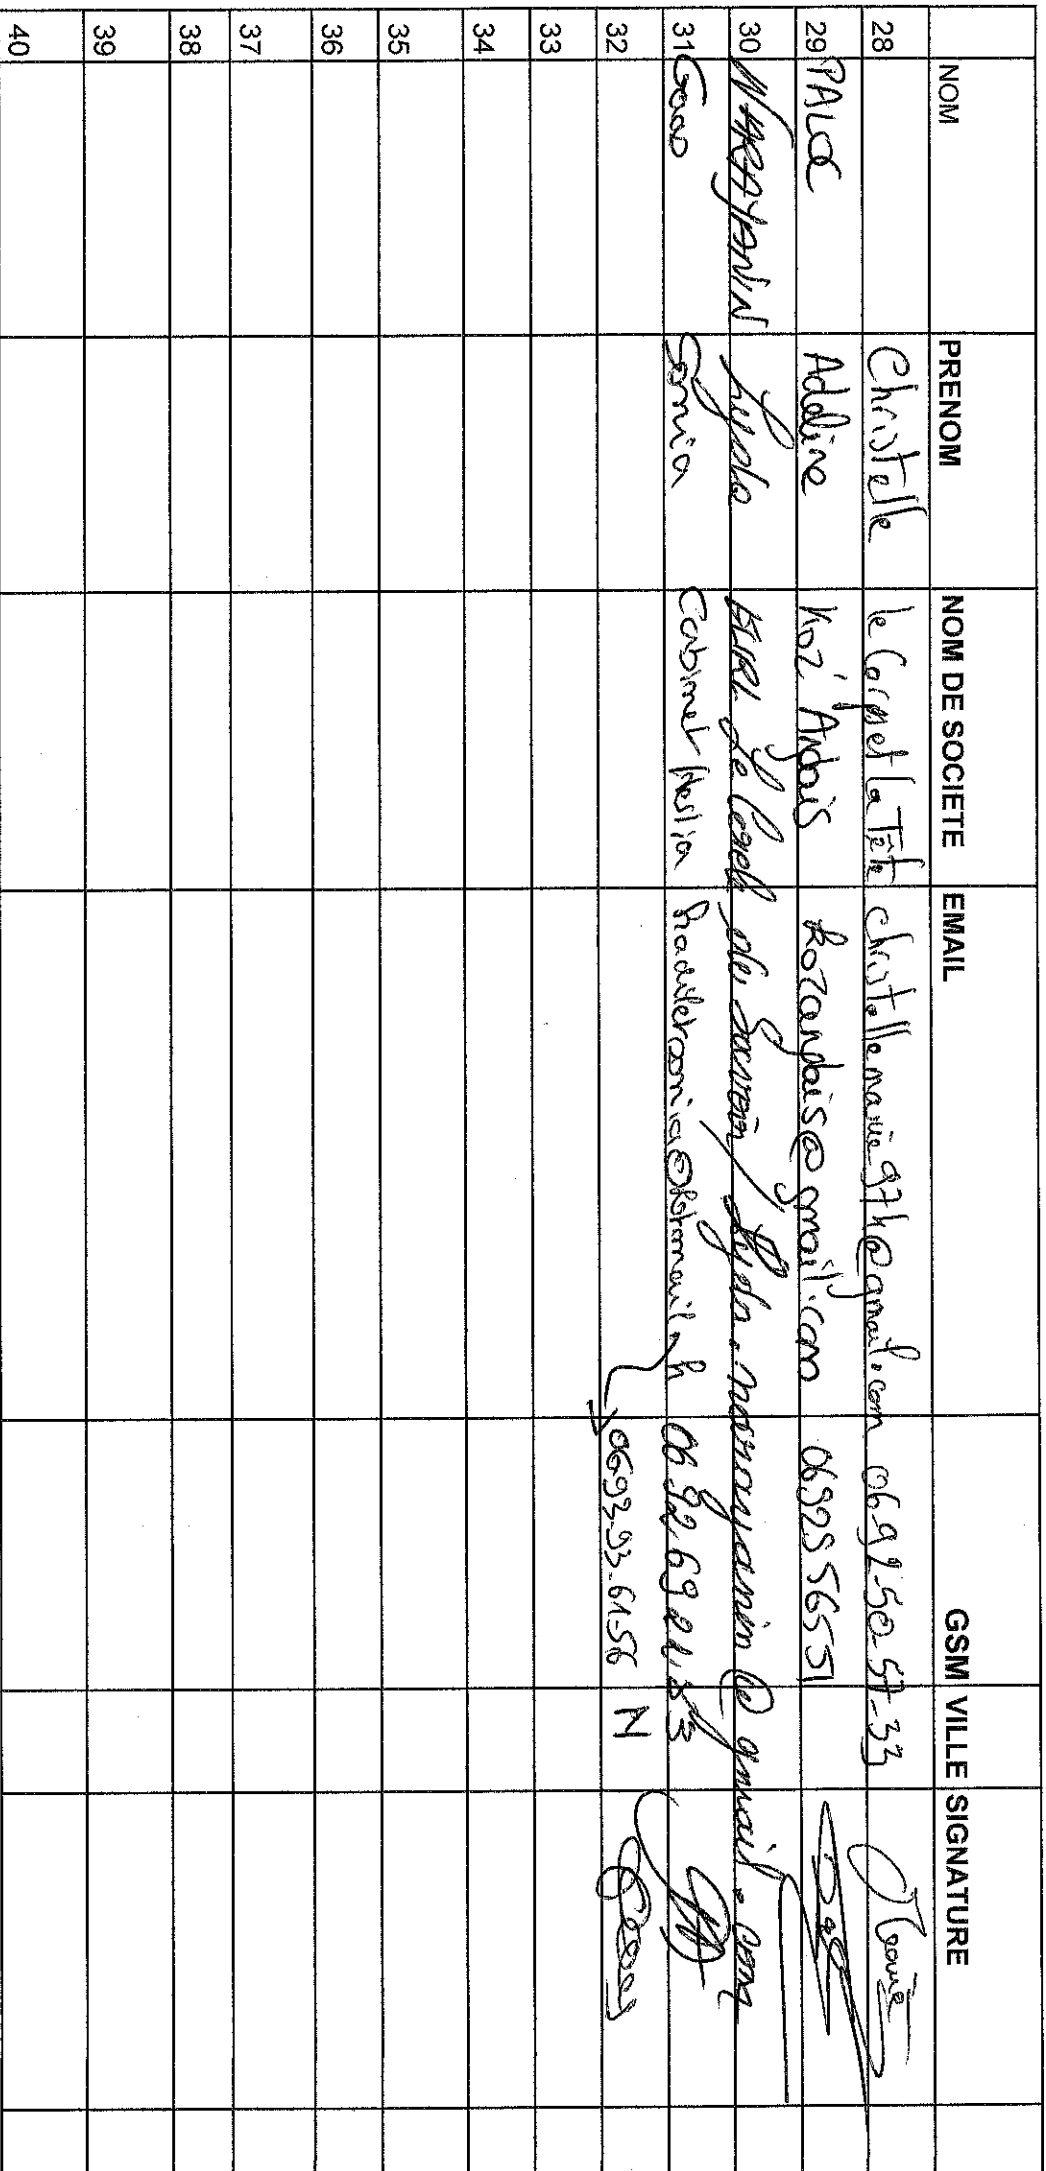 NOM PRENOM NOM DE SOCIETE EMAIL GSM VILLE SIGNATURE
28 Christelle le Corps et la Tête christellemarie974@gmail.com 0692-50-57-33
29 PALOC Adeline Koz'Anglais kozanglais@gmail.com 0692556551
30 NARAYANIN Lynda EIRL Le Coach de Survie / lynda.narayanin@gmail.com
31 Sonia Cabinet Hestia 06 92 69 21 83
32 0693-93-61-56 N
33
34
35
36
37
38
39
40